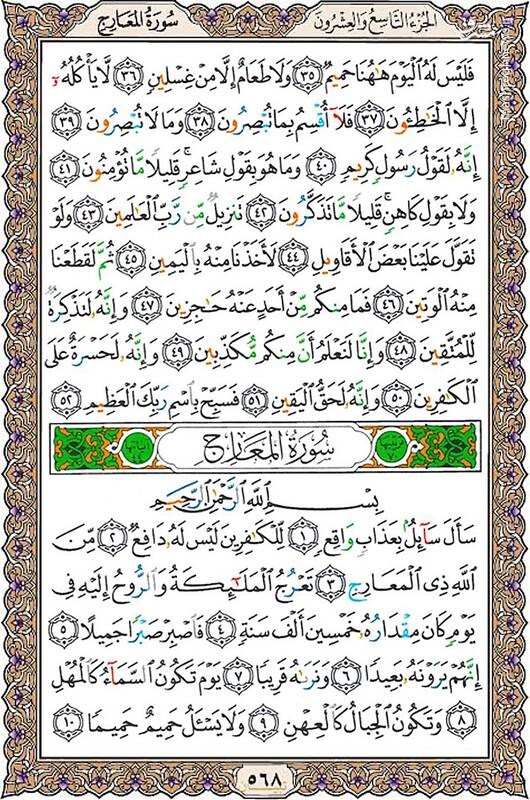 الجزء التاسع والعشرون سورة المعارج
فَلَيْسَ لَهُ ٱلْيَوْمَ هَٰهُنَا حَمِيمٌ ٣٥ وَلَا طَعَامٌ إِلَّا مِنْ غِسْلِينٍ ٣٦ لَّا يَأْكُلُهُۥٓ
إِلَّا ٱلْخَٰطِـُٔونَ ٣٧ فَلَآ أُقْسِمُ بِمَا تُبْصِرُونَ ٣٨ وَمَا لَا تُبْصِرُونَ ٣٩
إِنَّهُۥ لَقَوْلُ رَسُولٍ كَرِيمٍ ٤٠ وَمَا هُوَ بِقَوْلِ شَاعِرٍ ۚ قَلِيلًا مَّا تُؤْمِنُونَ ٤١
وَلَا بِقَوْلِ كَاهِنٍ ۚ قَلِيلًا مَّا تَذَكَّرُونَ ٤٢ تَنزِيلٌ مِّن رَّبِّ ٱلْعَٰلَمِينَ ٤٣ وَلَوْ
تَقَوَّلَ عَلَيْنَا بَعْضَ ٱلْأَقَاوِيلِ ٤٤ لَأَخَذْنَا مِنْهُ بِٱلْيَمِينِ ٤٥ ثُمَّ لَقَطَعْنَا
مِنْهُ ٱلْوَتِينَ ٤٦ فَمَا مِنكُم مِّنْ أَحَدٍ عَنْهُ حَٰجِزِينَ ٤٧ وَإِنَّهُۥ لَتَذْكِرَةٌ
لِّلْمُتَّقِينَ ٤٨ وَإِنَّا لَنَعْلَمُ أَنَّ مِنكُم مُّكَذِّبِينَ ٤٩ وَإِنَّهُۥ لَحَسْرَةٌ عَلَى
ٱلْكَٰفِرِينَ ٥٠ وَإِنَّهُۥ لَحَقُّ ٱلْيَقِينِ ٥١ فَسَبِّحْ بِٱسْمِ رَبِّكَ ٱلْعَظِيمِ ٥٢
سُورَةُ المَعَارِج
بِسْمِ ٱللَّهِ ٱلرَّحْمَٰنِ ٱلرَّحِيمِ
سَأَلَ سَآئِلٌۢ بِعَذَابٍ وَاقِعٍ ١ لِّلْكَٰفِرِينَ لَيْسَ لَهُۥ دَافِعٌ ٢ مِّنَ
ٱللَّهِ ذِى ٱلْمَعَارِجِ ٣ تَعْرُجُ ٱلْمَلَٰٓئِكَةُ وَٱلرُّوحُ إِلَيْهِ فِى
يَوْمٍ كَانَ مِقْدَارُهُۥ خَمْسِينَ أَلْفَ سَنَةٍ ٤ فَٱصْبِرْ صَبْرًا جَمِيلًا ٥
إِنَّهُمْ يَرَوْنَهُۥ بَعِيدًا ٦ وَنَرَىٰهُ قَرِيبًا ٧ يَوْمَ تَكُونُ ٱلسَّمَآءُ كَٱلْمُهْلِ
٨ وَتَكُونُ ٱلْجِبَالُ كَٱلْعِهْنِ ٩ وَلَا يَسْـَٔلُ حَمِيمٌ حَمِيمًا ١٠
٥٦٨